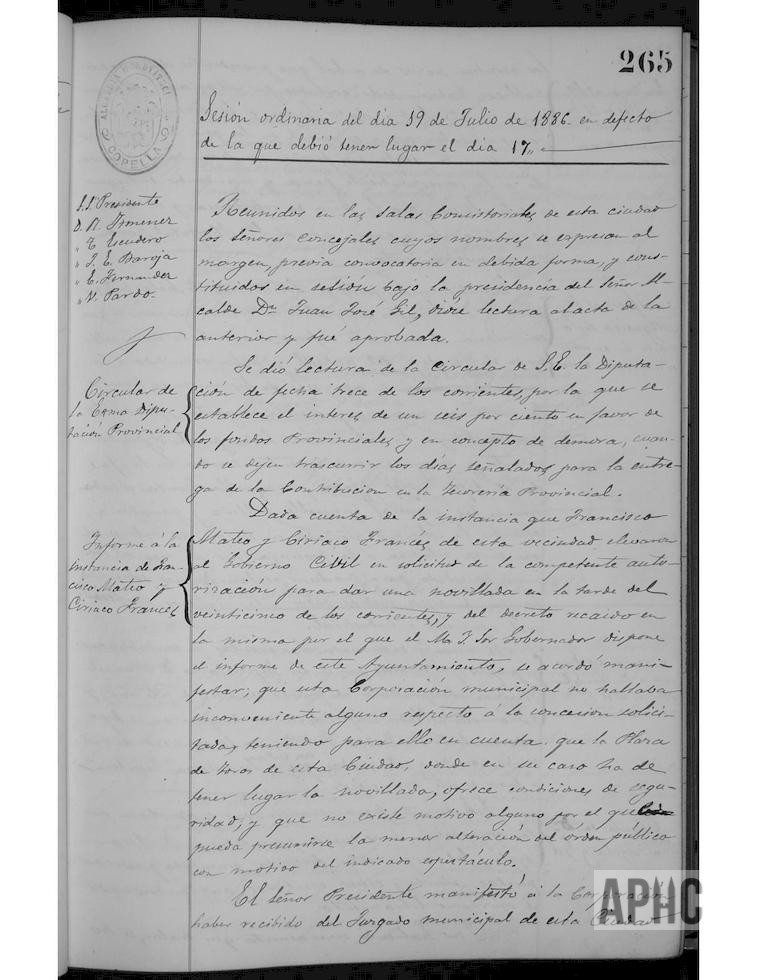 265
ALCALDIA CONSTITUCIONAL
CORELLA
Sesión ordinaria del dia 19 de Julio de 1886 en defecto
de la que debió tener lugar el dia 17,,
S.S. Presidente
D. R. Jimenez
" T. Escudero
" J. E. Baroja
" E. Fernandez
" V. Pardo.
Reunidos en las Salas Consistoriales de esta ciudad
los señores Concejales cuyos nombres se expresan al
margen, previa convocatoria en debida forma, y cons-
tituidos en sesión bajo la presidencia del Señor Al-
calde Dn. Juan José Gil, dióse lectura al acta de la
anterior y fué aprobada.
Circular de
la Exma Dipu-
tación Provincial
Se dió lectura de la Circular de S.E. la Diputa-
ción de fecha trece de los corrientes, por la que se
establece el interes de un seis por ciento en favor de
los fondos Provinciales y en concepto de demora, cuan-
do se dejen trascurrir los días señalados para la entre-
ga de la Contribucion en la Tesorería Provincial.
Informe á la
instancia de Fran-
cisco Mateo y
Ciriaco Francés
Dada cuenta de la instancia que Francisco
Mateo y Ciriaco Francés de esta vecindad elevaron
al Gobierno Civil en solicitud de la competente auto-
rización para dar una novillada en la tarde del
veinticinco de los corrientes, y del decreto recaido en
la misma por el que el M. I. Sor Gobernador dispone
el informe de este Ayuntamiento, se acordó mani-
festar; que esta Corporación municipal no hallaba
inconveniente alguno respecto á la concesion solici-
tada, teniendo para ello en cuenta que la Plaza
de Toros de esta Ciudad, donde en su caso ha de
tener lugar la novillada, ofrece condiciones de segu-
ridad, y que no existe motivo alguno por el que
pueda presumirse la menor alteración del orden público
con motivo del indicado espectáculo.
El señor Presidente manifestó á la Corporación
haber recibido del Juzgado municipal de esta Ciudad
APHC